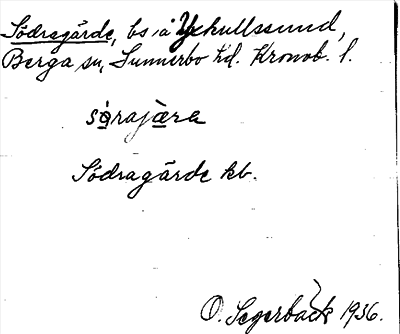 Södragårde, bs å Yxkullssund,
Berga sn, Sunnerbo hd. Kronob. l.
sörajære
Södragårde kb.
O. Segerbäck 1936.